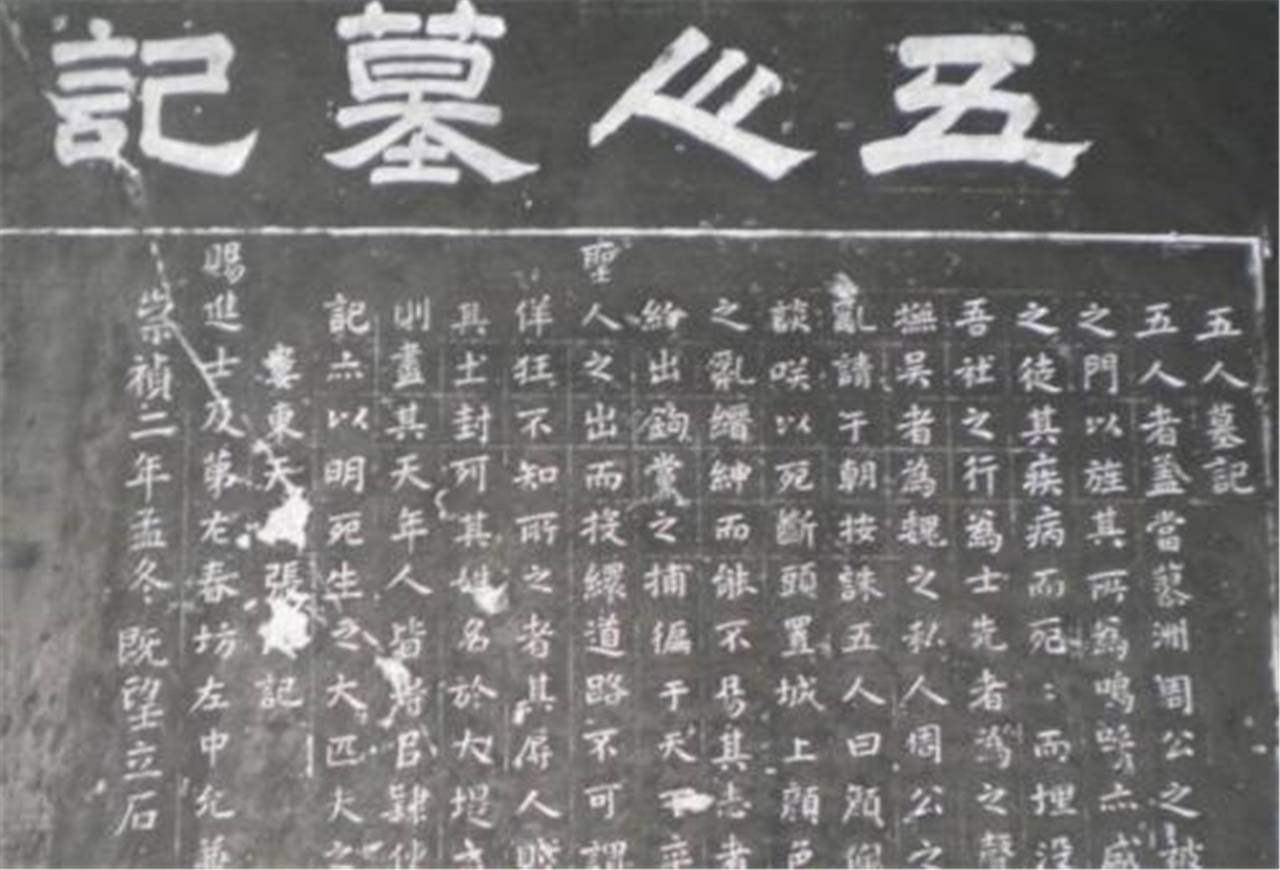 五人墓記
五人墓記
五人者蓋當蓼洲周公之被
之門以旌其所為嗚呼亦盛
之徒其疾病而死:而埋沒
吾社之行為士先者為之聲
撫吳者為魏之私人周公之
亂請于朝按誅五人曰顏佩
談咲以死斷頭置城上顏色
之亂縉紳而能不易其志者
紛出鉤黨之捕徧于天下卒
聖人之出而投繯道路不可謂
佯狂不知所之者其辱人賤
其土封列其姓名於大堤之
則盡其天年人皆得以隸使
記亦以明死生之大匹夫之
婁東天張記
賜進士及第左春坊左中允兼
崇禎二年孟冬既望立石